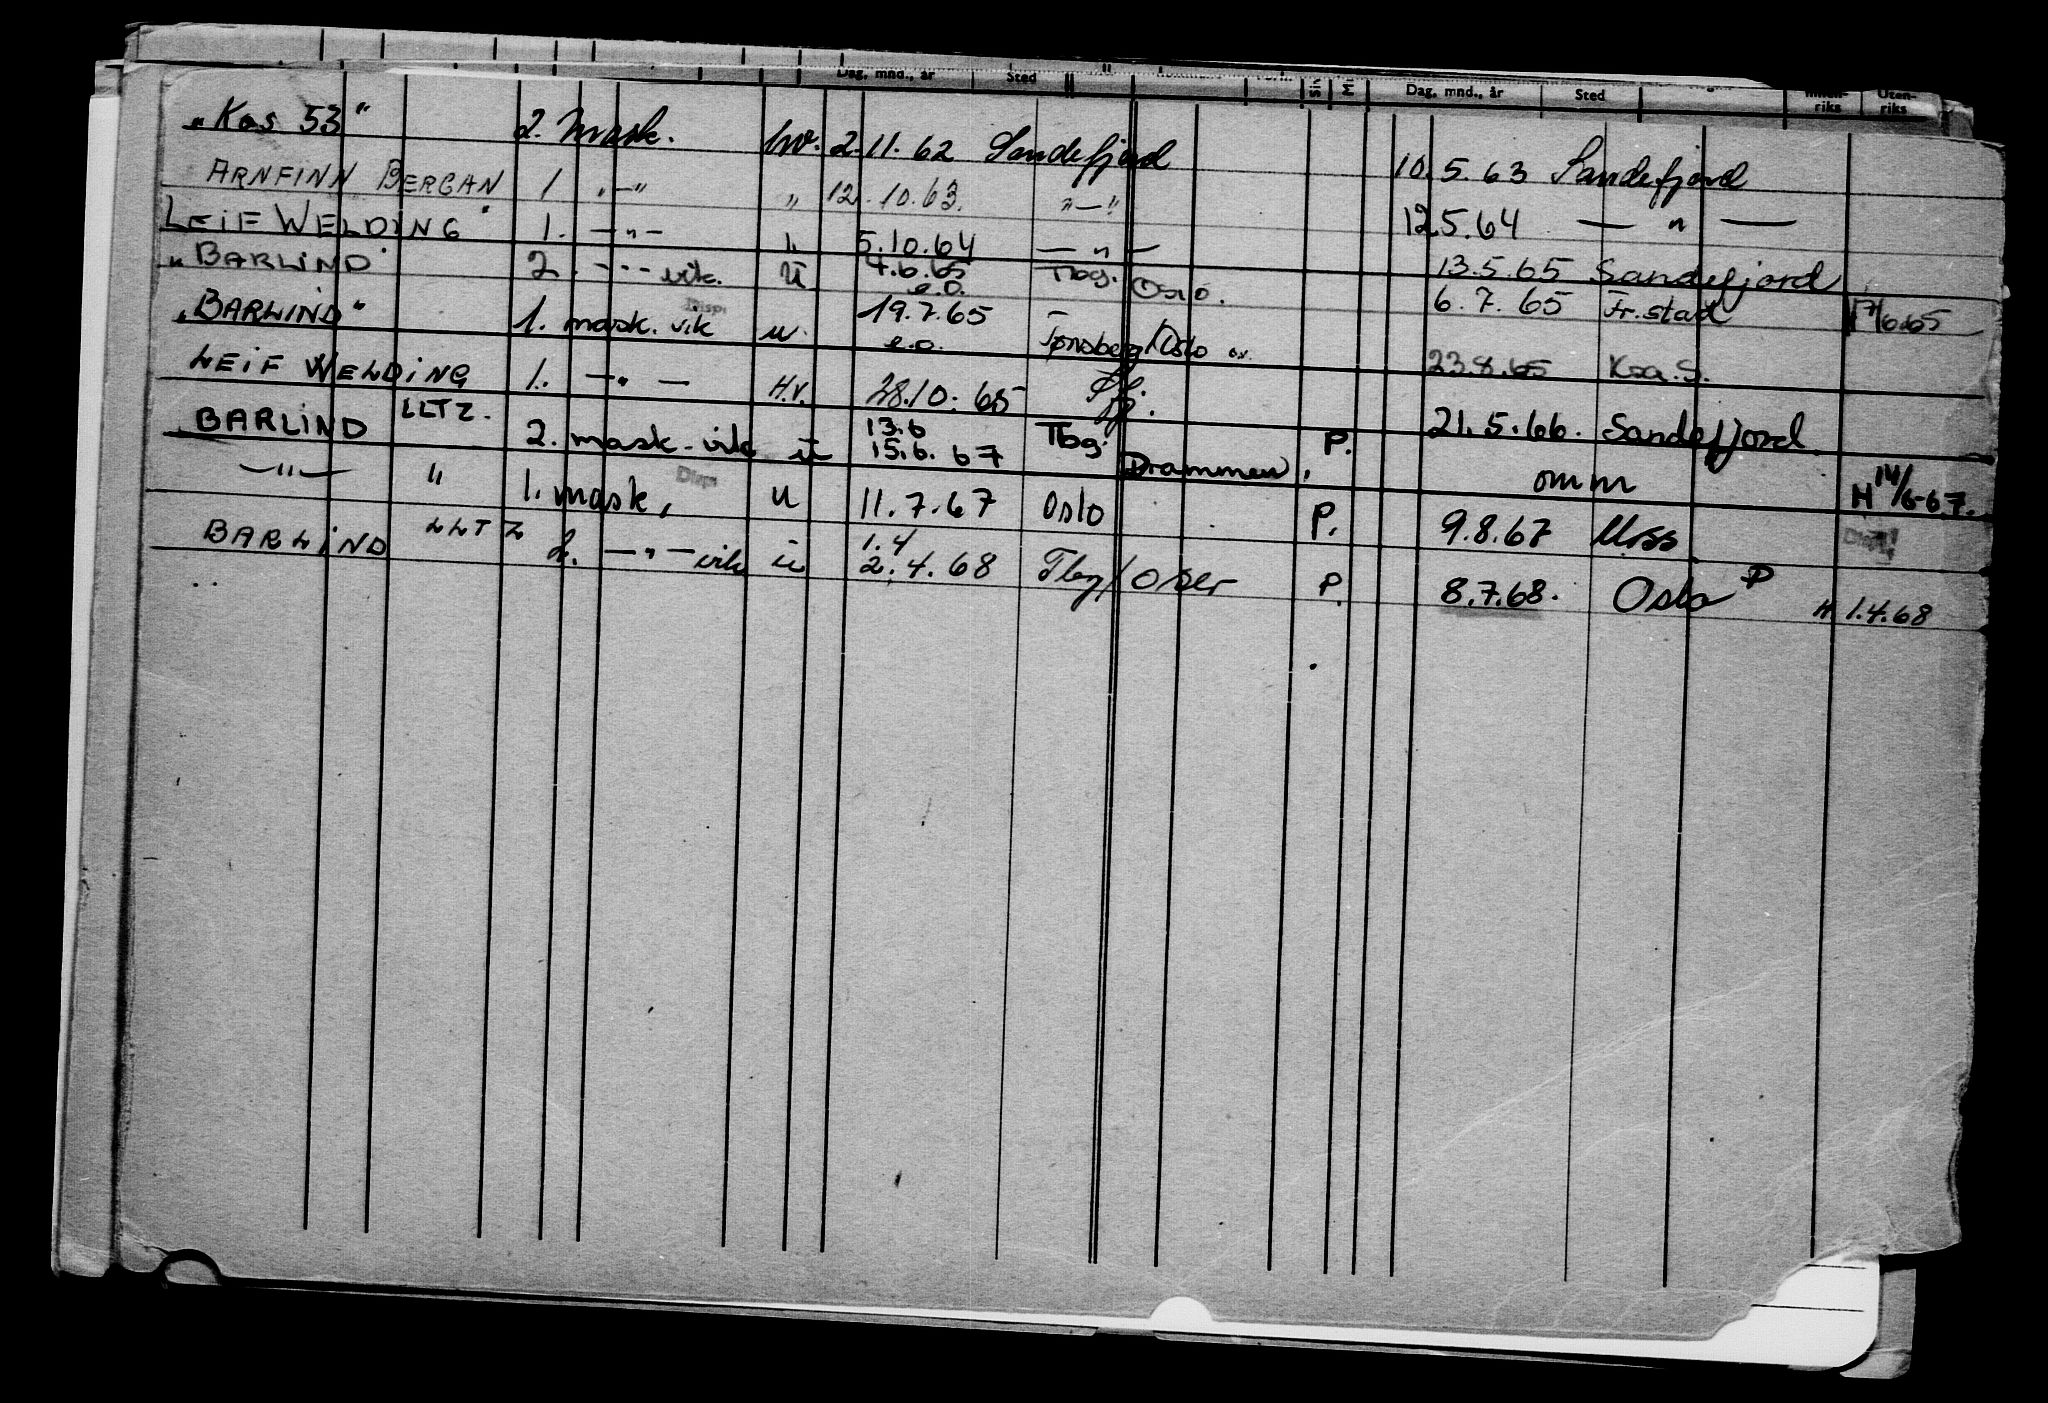 Dag, mnd., år Sted Dag, mnd., år Sted Uten-
riks riks
"Kos 53" 2. Mask. hv. 2.11.62 Sandefjord 10.5.63 Sandefjord
ARNFINN BERGAN 1 "—" " 12.10.63. "—" 12.5.64 — " —
LEIF WELDING" 1. —"— " 5.10.64 — " — 13.5.65 Sandefjord
"BARLIND" 2. --- vik. u 4.6.65 Tbg. Oslo. 6.7.65 Fr.stad 17/6.65
e.o.
"BARLIND" 1. mask. vik Disp. u 19.7.65 Tønsberg/Oslo 23.8.65 Koa.S.
e.o.
LEIF WELDING 1. —"— H.V. 28.10.65 Sfj. 21.5.66. Sandefjord
BARLIND LLTZ. 2. mask. vik u 13.6 Tbg. Drammen, P. omm H 14/6-67.
15.6.67
—"— " 1. mask, Disp. u 11.7.67 Oslo P. 9.8.67 Moss Disp.
BARLIND LLTZ 2. —"— vik u 1.4 Tbg/ P. 8.7.68. Oslo P H 1.4.68
2.4.68